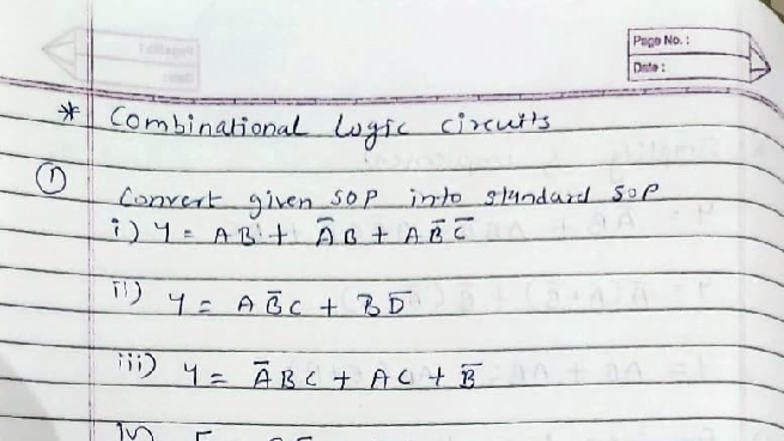 Page No. :
Date :
* Combinational Logic circuits
① Convert given SOP into standard SOP
i) Y = AB + A̅B + AB̅C̅
ii) Y = AB̅C + BD̅
iii) Y = A̅BC + AC + B̅